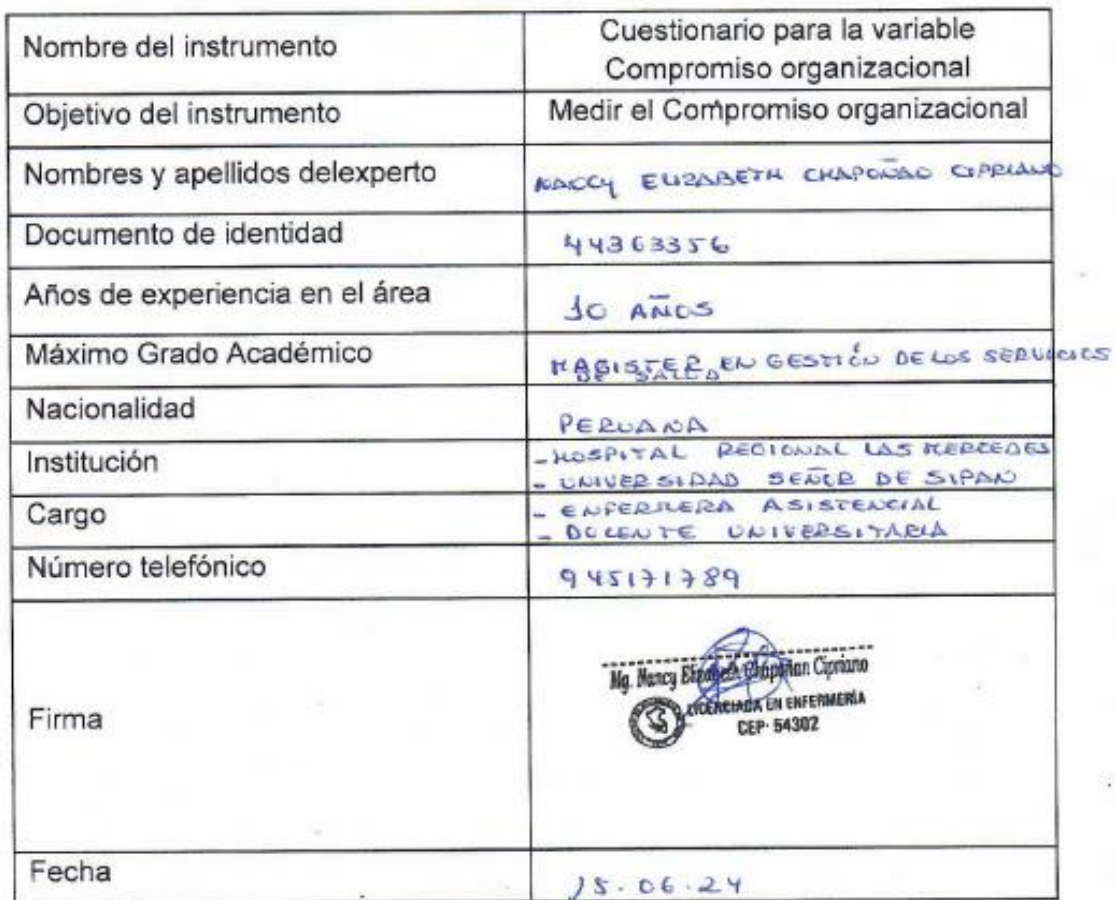 Nombre del instrumento
Cuestionario para la variable
Compromiso organizacional
Objetivo del instrumento
Medir el Compromiso organizacional
Nombres y apellidos delexperto
NANCY ELIZABETH CHAPOÑAN CIPRIANO
Documento de identidad
44363356
Años de experiencia en el área
10 AÑOS
Máximo Grado Académico
MAGISTER EN GESTIÓN DE LOS SERVICIOS
DE SALUD
Nacionalidad
PERUANA
Institución
- HOSPITAL REGIONAL LAS MERCEDES
- UNIVERSIDAD SEÑOR DE SIPAN
Cargo
- ENFERMERA ASISTENCIAL
- DOCENTE UNIVERSITARIA
Número telefónico
945171789
Firma
Mg. Nancy Elizabeth Chapoñan Cipriano
LICENCIADA EN ENFERMERÍA
CEP. 54302
Fecha
15.06.24